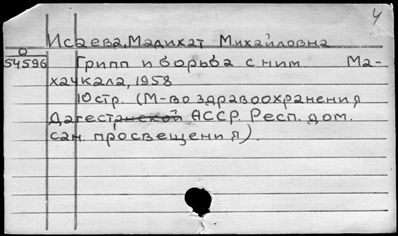 4
Исаева, Мадихат Михайловна
54596 Грипп и борьба с ним Ма-
хачкала, 1958
10 стр. (М-во здравоохранения
Дагестанской АССР. Респ. дом.
сан. просвещения).